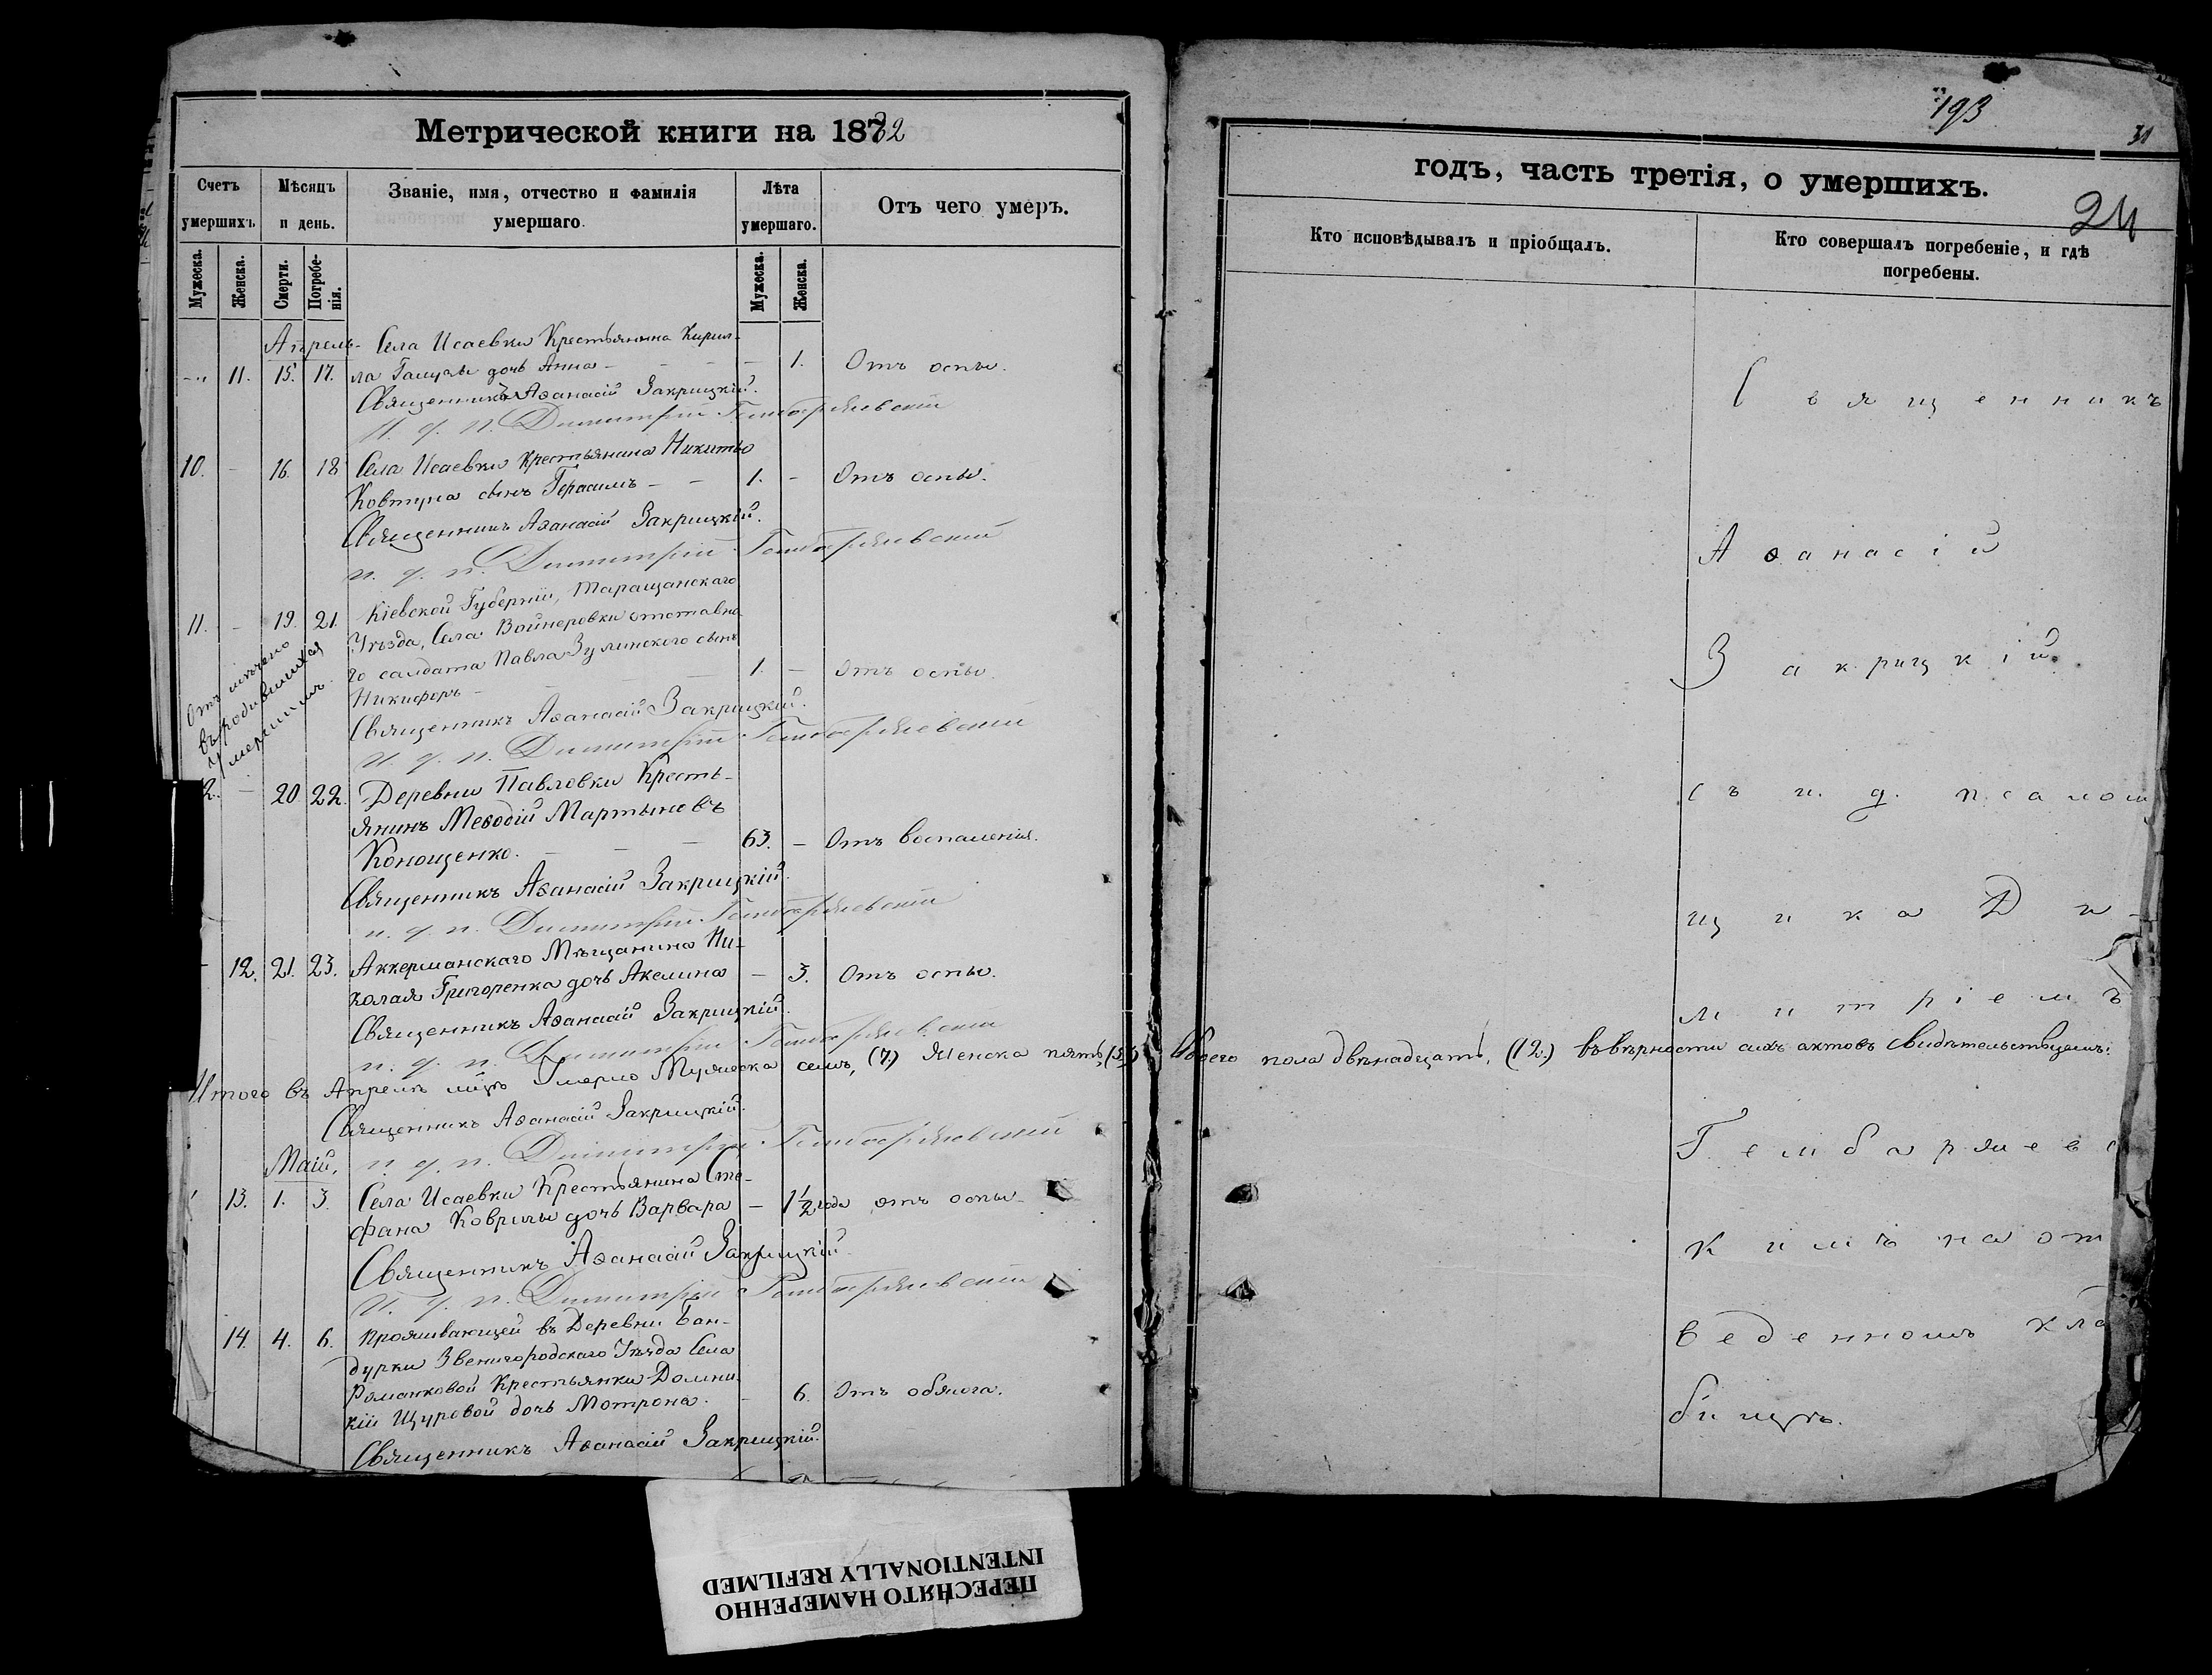 Метрической книги на 1882
Счетъ умершихъ
Мѣсяцъ и день.
Званіе, имя, отчество и фамилія умершаго.
Лѣта умершаго.
Отъ чего умеръ.
Мужеска.
Женска.
Смерти.
Погребе-
нія.
Мужеска.
Женска.
Апрель- Села Исаевки Крестьянина Кирил-
11. 15. 17. ла дочь Анна - 1. Отъ оспы.
Священникъ Аѳанасій Закрицкій.
И. д. п. Димитрій Гембаржевскій
10. - 16. 18 Села Исаевки Крестьянина Никиты
Ковтуна сынъ Герасимъ - 1. - Отъ оспы.
Священникъ Аѳанасій Закрицкій.
и. д. п. Димитрій Гембаржевскій
Кіевской Губерніи, Таращанскаго
11. - 19. 21. Уѣзда, Села Войнеровки отставна-
го салдата Павла Зулинского сынъ
Никифоръ - 1. - Отъ оспы.
Отмѣчено
въ родившихся
умершимъ
Священникъ Аѳанасій Закрицкій.
и. д. п. Димитрій Гембаржевскій
2. - 20. 22. Деревни Павловки Кресть-
янинъ Меѳодій Мартыновъ
Конощенко. - 63. - Отъ воспаленія.
Священникъ Аѳанасій Закрицкій.
и. д. п. Димитрій Гембаржевскій
- 12. 21. 23. Аккерманскаго Мѣщанина Ни-
колая Григоренка дочь Акелина - 3. Отъ оспы.
Священникъ Аѳанасій Закрицкій.
и. д. п. Димитрій Гембаржевскій
Итого въ Апрелѣ мцѣ Умерло Мужеска семь, (7.) Женска пять, (5.)
Священникъ Аѳанасій Закрицкій.
и. д. п. Димитрій Гембаржевскій
Маій,
13. 1. 3. Села Исаевки Крестьянина Сте-
фана Коврилы дочь Варвара - 1½ года отъ оспы -
Священникъ Аѳанасій Закрицкій
И. д. п. Димитрій Гембаржевскій
14. 4. 6. Проживающей въ Деревни Бан-
дурки Звенигородскаго Уѣзда Села
Романковой Крестьянки Домни-
кіи Щуровой дочь Мотрона. - 6. Отъ обжога.
Священникъ Аѳанасій Закрицкій.
193
31
годъ, часть третія, о умершихъ.
24
Кто исповѣдывалъ и пріобщалъ.
Кто совершалъ погребеніе, и гдѣ
погребены.
Священникъ
Аѳанасій
Закрицкій
съ и. д. псаломщ
щика Ди-
митріемъ
Обоего пола двѣнадцать, (12.) въ вѣрности сихъ актовъ свидѣтельствуемъ:
Гембаржевс
кимъ на от
веденномъ кла
бищѣ.
ПЕРЕСНЯТО НАМЕРЕННО
INTENTIONALLY REFILMED